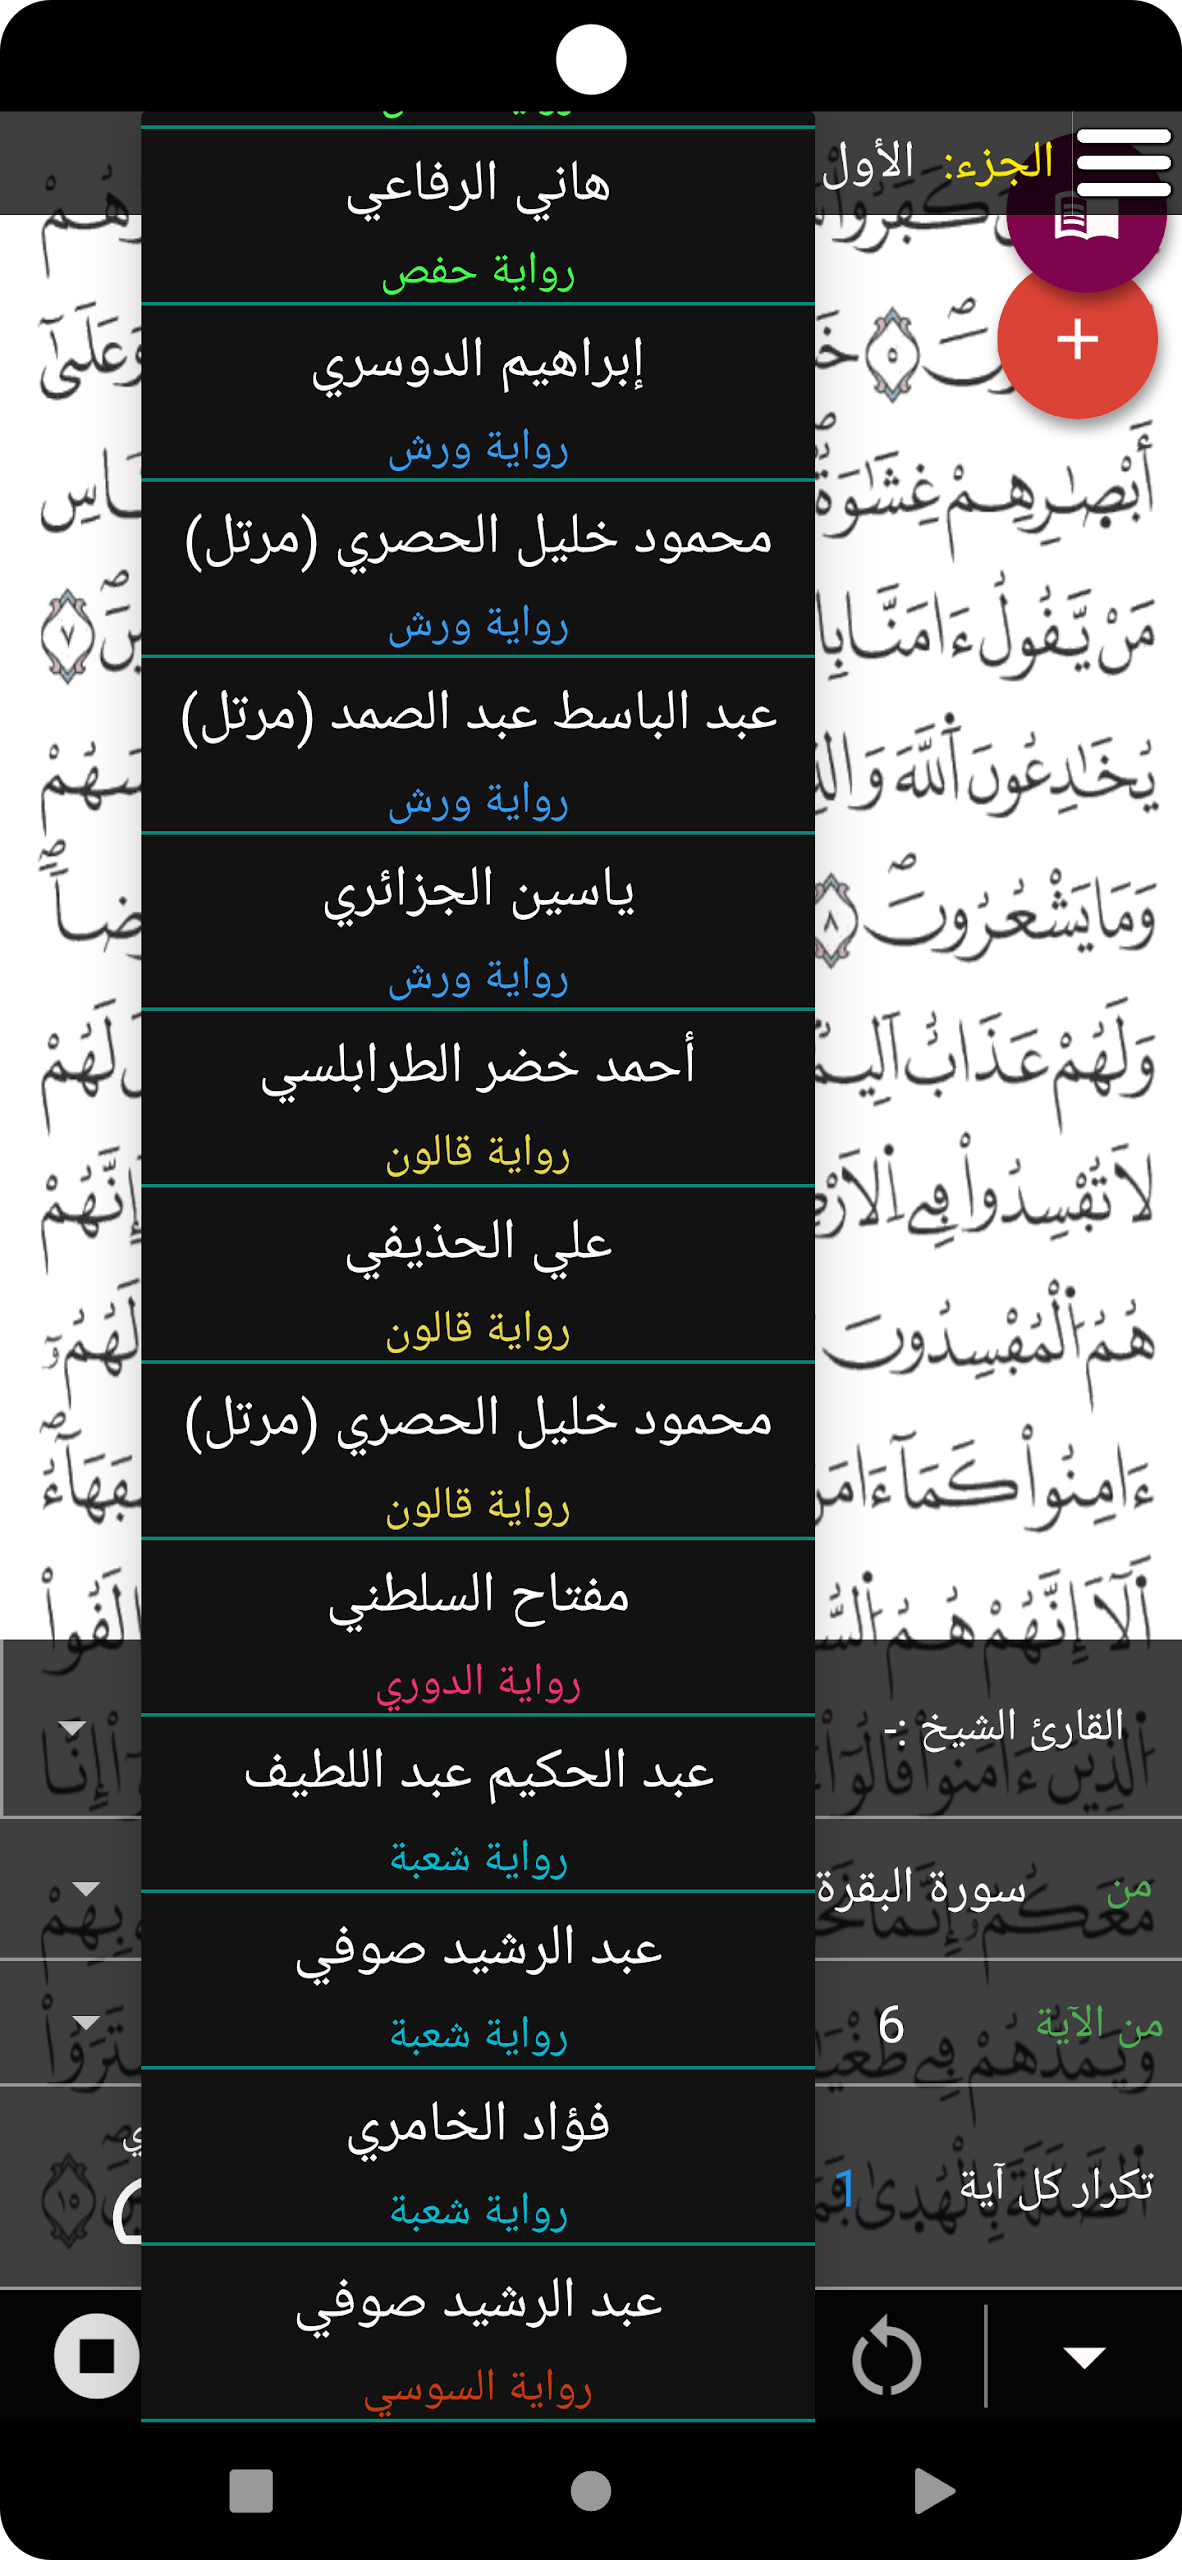 الجزء: الأول
هاني الرفاعي
رواية حفص
إبراهيم الدوسري
رواية ورش
محمود خليل الحصري (مرتل)
رواية ورش
عبد الباسط عبد الصمد (مرتل)
رواية ورش
ياسين الجزائري
رواية ورش
أحمد خضر الطرابلسي
رواية قالون
علي الحذيفي
رواية قالون
محمود خليل الحصري (مرتل)
رواية قالون
مفتاح السلطني
رواية الدوري
عبد الحكيم عبد اللطيف
رواية شعبة
عبد الرشيد صوفي
رواية شعبة
فؤاد الخامري
رواية شعبة
عبد الرشيد صوفي
رواية السوسي
كَفَرُواْ
٥ وَعَلَىٰٓ
أَبْصَٰرِهِمْ غِشَٰوَةٞ
مَنْ يَّقُولُ ءَامَنَّا ٧
يُخَٰدِعُونَ اَ۬للَّهَ
وَمَا يَشْعُرُونَۖ ٨
وَلَهُمْ عَذَابٌ اَلِيمُۢ لَهُمْ
لَا تُفْسِدُواْ فِے اِ۬لَارْضِ إِنَّهُمْ
هُمُ اُ۬لْمُفْسِدُونَ
ءَامِنُواْ كَمَآ
أَلَآ إِنَّهُمْ هُمُ
القارئ الشيخ :-
من سورة البقرة
من الآية 6
تكرار كل آية 1